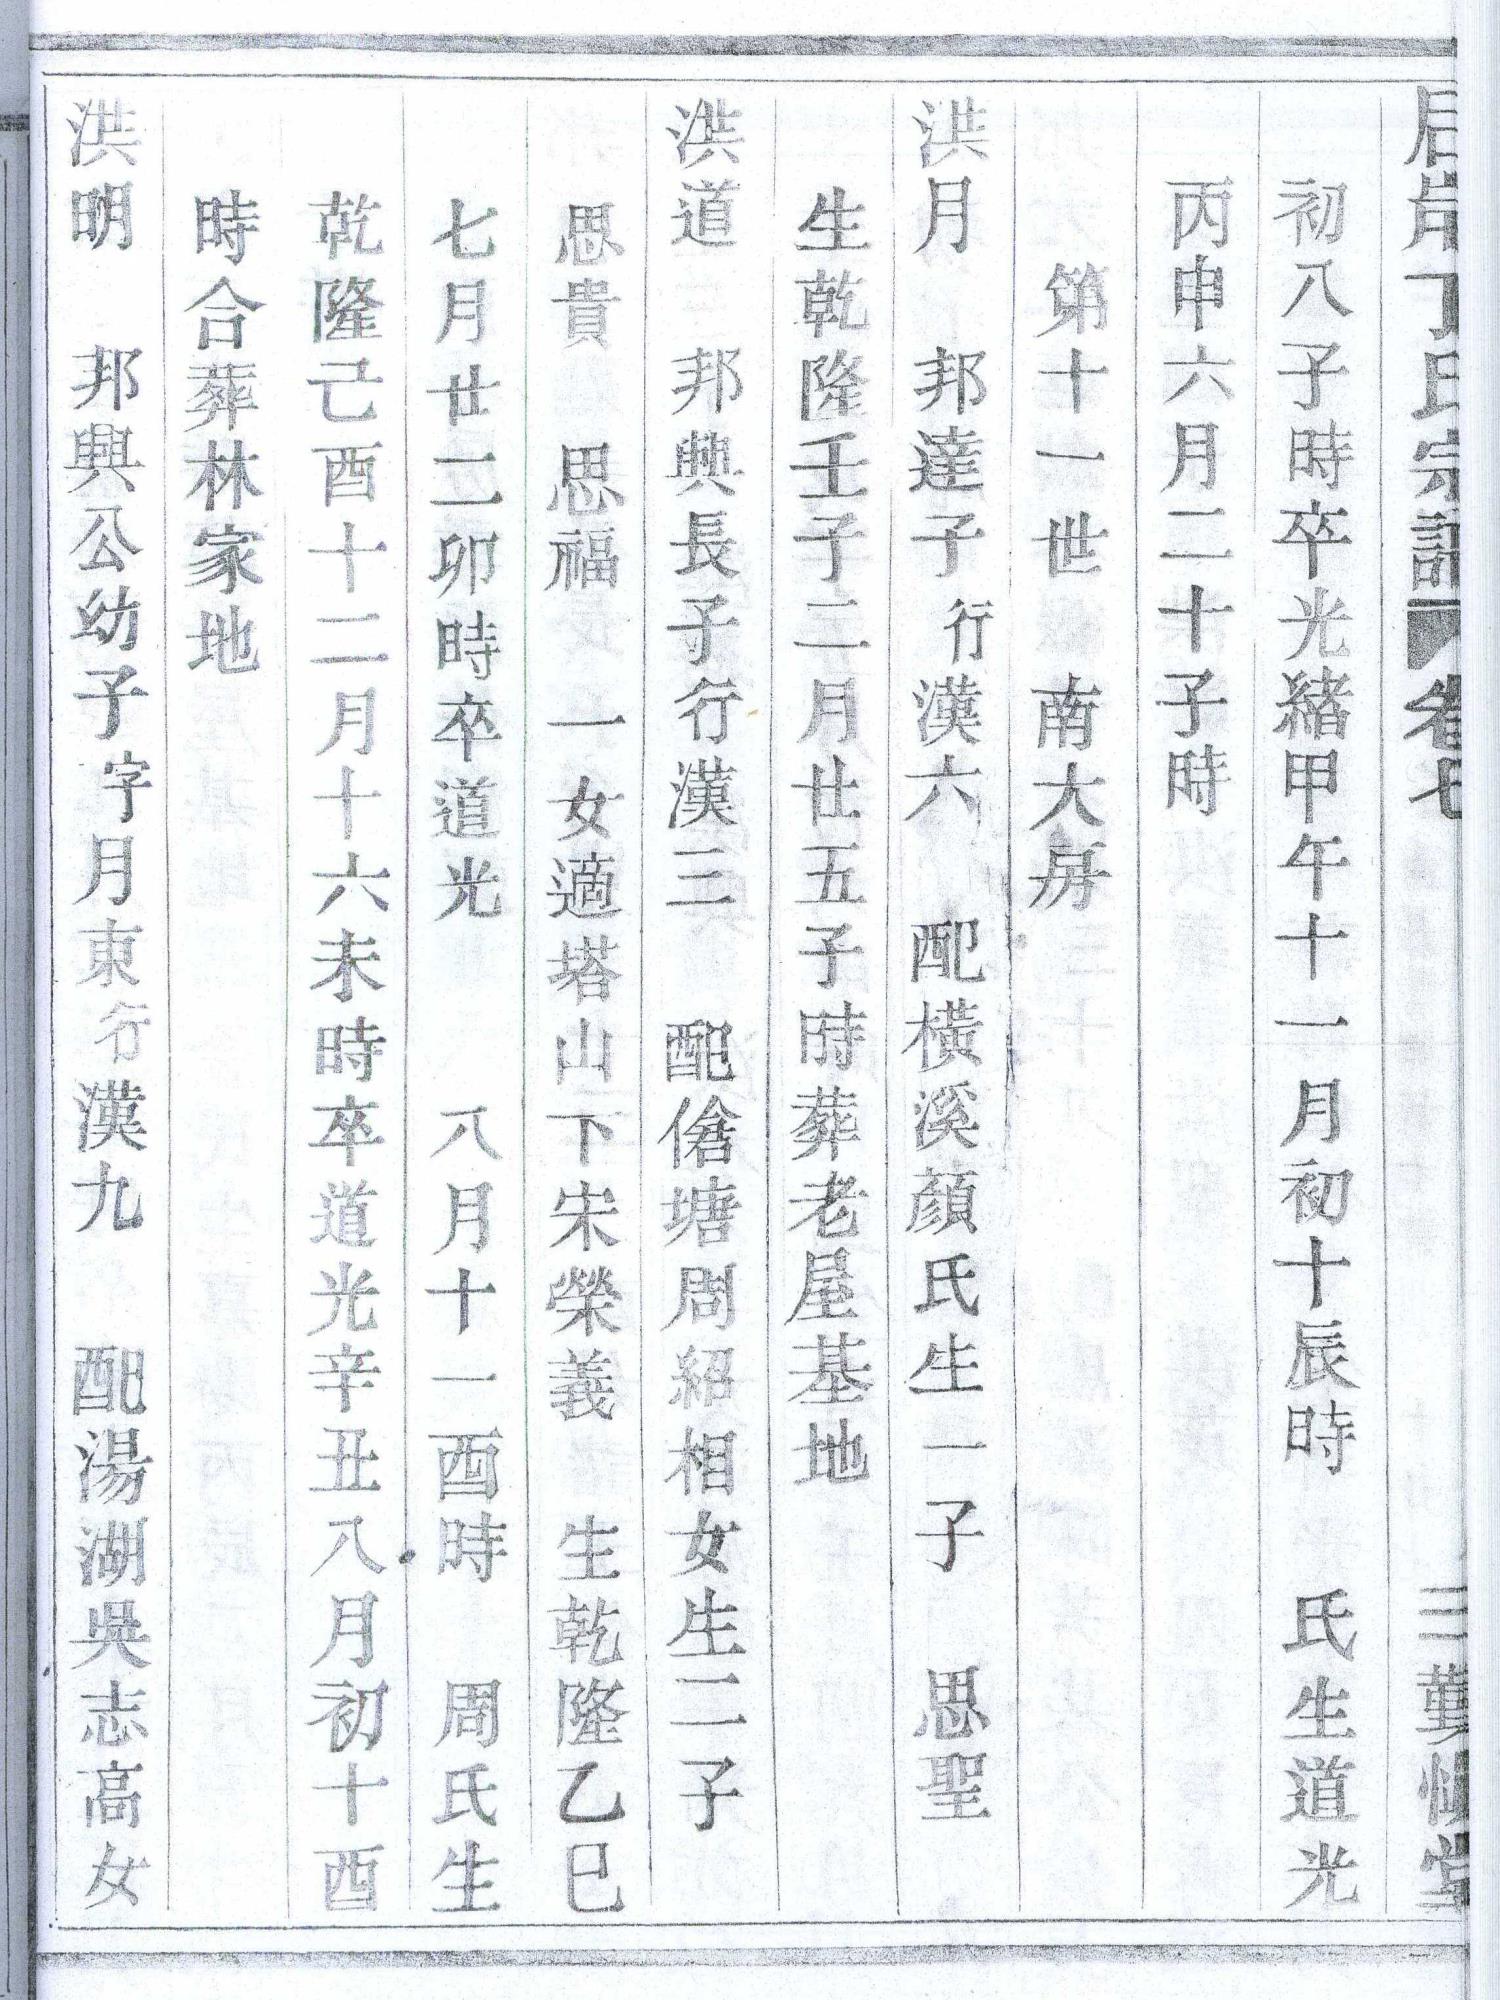 丁氏宗譜 卷七 三勤慎堂
初八子時卒光緒甲午十一月初十辰時 氏生道光
丙申六月二十子時
第十一世 南大房
洪月 邦達子行漢六 配橫溪顏氏生一子 思聖
生乾隆壬子二月廿五子時葬老屋基地
洪道 邦興長子行漢三 配傖塘周紹相女生二子
思貴 思福 一女適塔山下宋榮義 生乾隆乙巳
七月廿二卯時卒道光 八月十一酉時 周氏生
乾隆己酉十二月十六未時卒道光辛丑八月初十酉
時合葬林家地
洪明 邦興公幼子字月東行漢九 配湯湖吳志高女